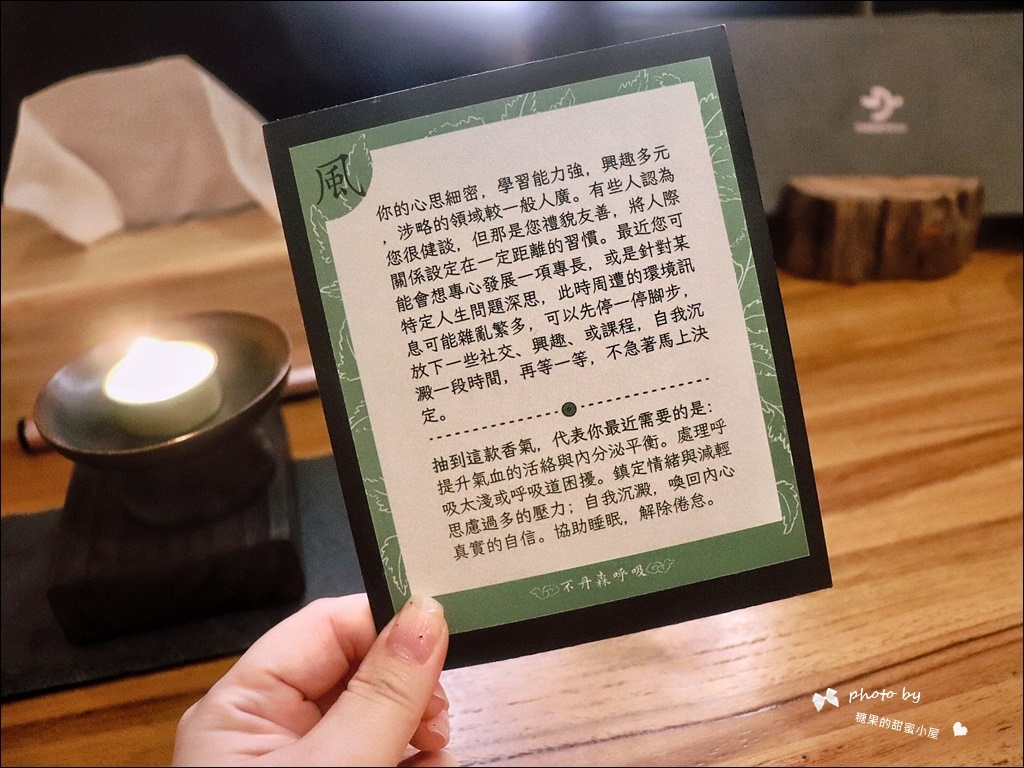 風
你的心思細密，學習能力強，興趣多元
，涉略的領域較一般人廣。有些人認為
您很健談，但那是您禮貌友善，將人際
關係設定在一定距離的習慣。最近您可
能會想專心發展一項專長，或是針對某
特定人生問題深思，此時周遭的環境訊
息可能雜亂繁多，可以先停一停腳步，
放下一些社交、興趣、或課程，自我沉
澱一段時間，再等一等，不急著馬上決
定。
抽到這款香氣，代表你最近需要的是：
提升氣血的活絡與內分泌平衡。處理呼
吸太淺或呼吸道困擾。鎮定情緒與減輕
思慮過多的壓力；自我沉澱，喚回內心
真實的自信。協助睡眠，解除倦怠。
不丹森呼吸
photo by
糖果的甜蜜小屋